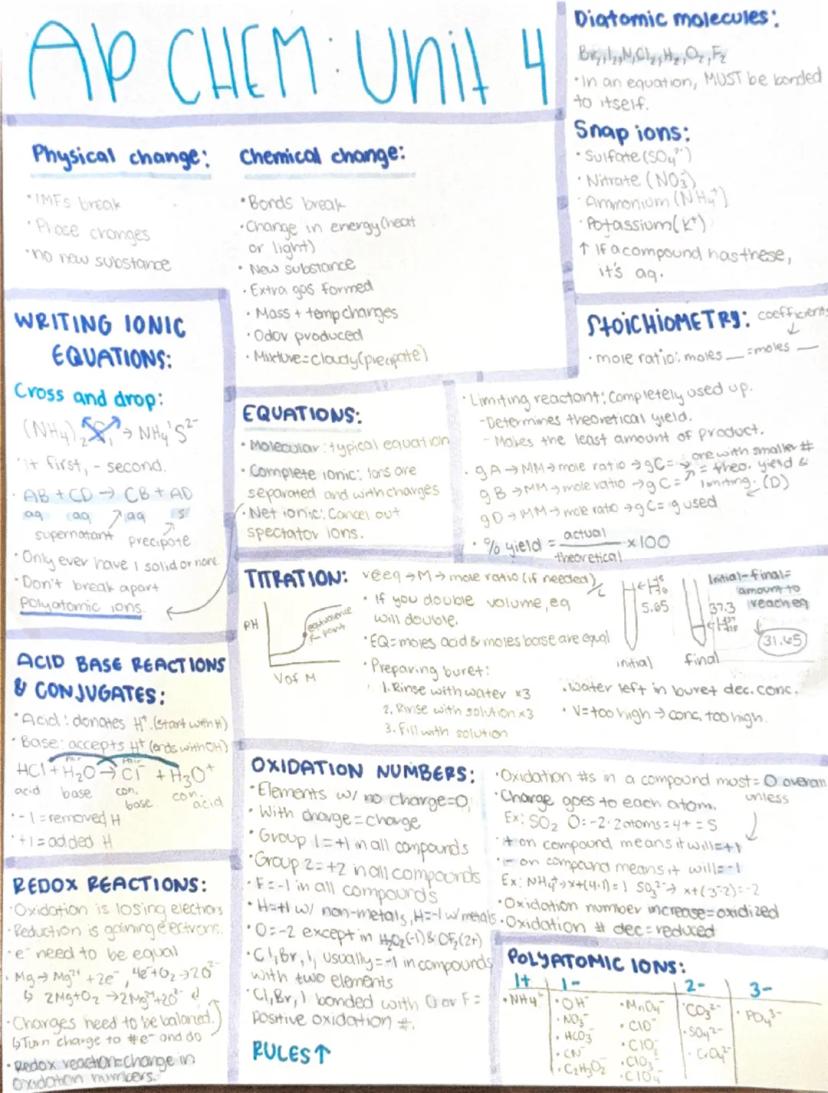 AP CHEM: Unit 4
Diatomic molecules:
Br₂, I₂, N₂, Cl₂, H₂, O₂, F₂
• In an equation, MUST be bonded
to itself.
Snap ions:
• Sulfate (SO₄²⁻)
• Nitrate (NO₃⁻)
• Ammonium (NH₄⁺)
• Potassium (K⁺)
↑ If a compound has these,
it's aq.
Physical change:
• IMFs break
• Phase changes
• no new substance
Chemical change:
• Bonds break
• Change in energy (heat
or light)
• New substance
• Extra gas formed
• Mass + temp changes
• Odor produced
• Mixture = cloudy (precipate)
STOICHIOMETRY: coefficients
• mole ratio: moles __ = moles __
• Limiting reactant: Completely used up.
- Determines theoretical yield.
- Makes the least amount of product.
• g A → MM → mole ratio → g C = one with smaller #
g B → MM → mole ratio → g C = = theo. yield &
limiting. (D)
g D → MM → mole ratio → g C = g used
• % yield = actual
theoretical
× 100
WRITING IONIC
EQUATIONS:
Cross and drop:
(NH₄)₂ S₁ → NH₄¹ S²⁻
+ first, - second.
• AB + CD → CB + AD
aq aq aq s
supernatant precipote
• Only ever have 1 solid or more
• Don't break apart
polyatomic ions.
EQUATIONS:
• Molecular: typical equation
• Complete ionic: Ions are
separated and with charges
• Net ionic: Cancel out
spectator ions.
TITRATION: → M → mole ratio (if needed)
PH
equivalence
point
V of M
• If you double volume, eq
will double.
• EQ = moles acid & moles base are equal
• Preparing buret:
1. Rinse with water ×3
2. Rinse with solution ×3
3. Fill with solution
5.65
initial
37.3
final
Initial - final =
amount to
reach eq
31.65
• Water left in buret dec. conc.
• V = too high → conc. too high.
ACID BASE REACTIONS
& CONJUGATES:
• Acid: donates H⁺ (start with H)
• Base: accepts H⁺ (ends with OH)
HCl + H₂O → Cl⁻ + H₃O⁺
acid base con. base con. acid
• -1 = removed H
• +1 = added H
OXIDATION NUMBERS:
• Elements w/ no charge = 0
• With charge = charge
• Group 1 = +1 in all compounds
• Group 2 = +2 in all compounds
• F = -1 in all compounds
• H = +1 w/ non-metals, H = -1 w/ metals
• O = -2 except in H₂O₂ (-1) & OF₂ (2+)
• Cl, Br, I, usually = -1 in compounds
with two elements
• Cl, Br, I bonded with O or F =
positive oxidation #.
RULES ↑
• Oxidation #s in a compound must = 0 overall
unless
• Charge goes to each atom.
Ex: SO₂ O = -2 · 2 atoms = 4+ = S
• + on compound means it will = +1
• - on compound means it will = -1
Ex: NH₄⁺ → x + (4·1) = 1 SO₃²⁻ → x + (3·-2) = -2
• Oxidation number increase = oxidized
• Oxidation # dec = reduced
REDOX REACTIONS:
• Oxidation is losing electrons
• Reduction is gaining electrons.
• e⁻ need to be equal
• Mg → Mg²⁺ + 2e⁻, 4e⁻ + O₂ → 2O²⁻
↳ 2Mg + O₂ → 2Mg²⁺ + 2O²⁻
• Charges need to be balanced.
↳ Turn charge to # e⁻ and do
• Redox reaction = change in
oxidation numbers.
POLYATOMIC IONS:
1+ 1- 2- 3-
• NH₄⁺ • OH⁻ • MnO₄⁻ • CO₃²⁻ • PO₄³⁻
• NO₃⁻ • ClO⁻ • SO₄²⁻
• HCO₃⁻ • ClO₂⁻ • CrO₄²⁻
• CN⁻ • ClO₃⁻
• C₂H₃O₂⁻ • ClO₄⁻